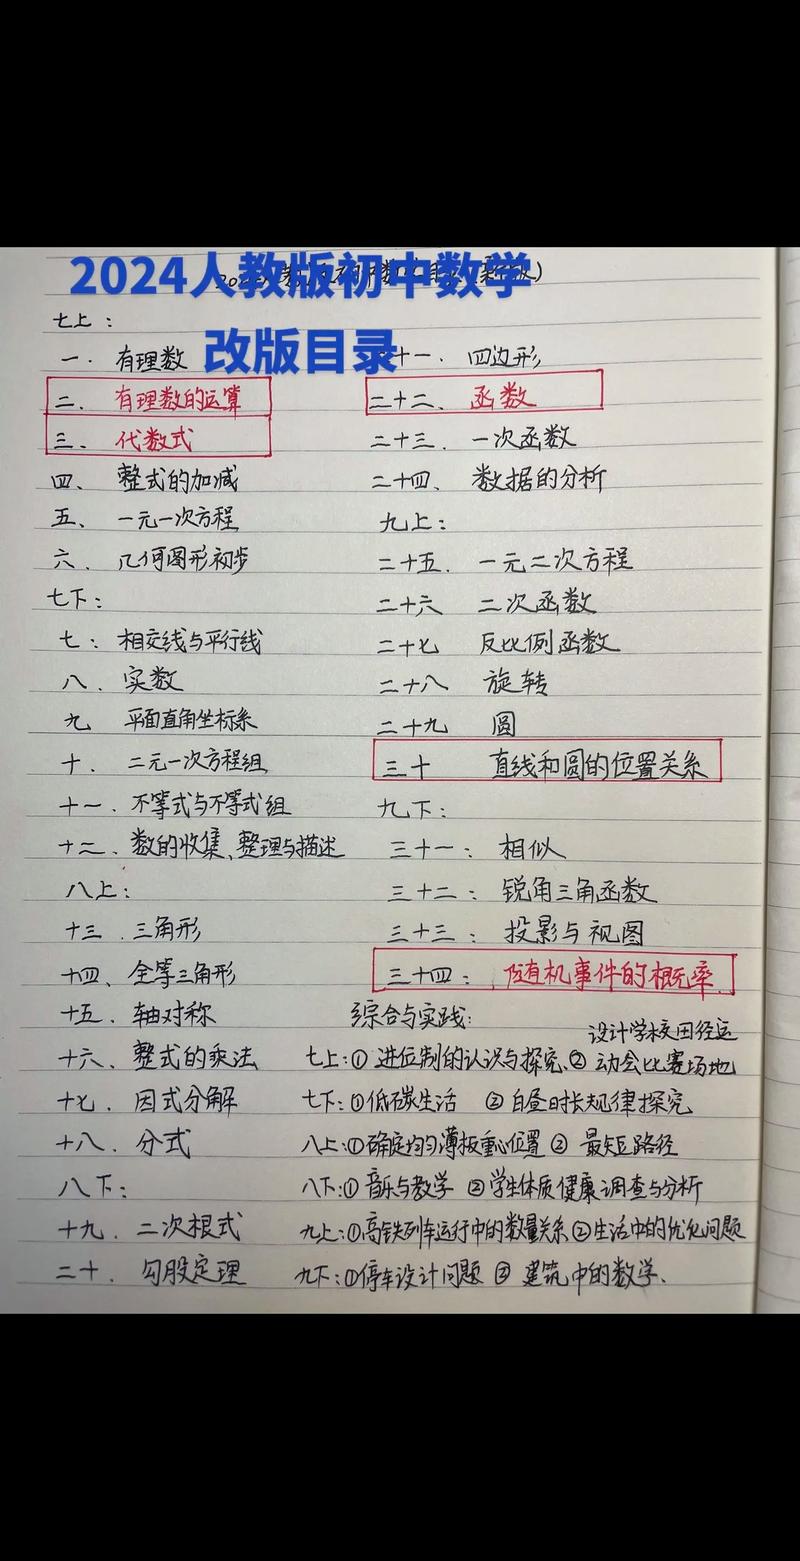 2024人教版初中数学
改版目录
七上：
一. 有理数
二、有理数的运算
三、代数式
四、整式的加减
五、一元一次方程
六、几何图形初步
七下：
七：相交线与平行线
八、实数
九 平面直角坐标系
十、二元一次方程组
十一、不等式与不等式组
十二、数的收集、整理与描述
八上：
十三、三角形
十四、全等三角形
十五、轴对称
十六、整式的乘法
十七、因式分解
十八、分式
八下：
十九、二次根式
二十、勾股定理
十一、四边形
二十二、函数
二十三、一次函数
二十四、数据的分析
九上：
二十五、一元二次方程
二十六 二次函数
二十七 反比例函数
二十八 旋转
二十九 圆
三十 直线和圆的位置关系
九下：
三十一：相似
三十二：锐角三角函数
三十三：投影与视图
三十四：随机事件的概率
综合与实践：
七上：① 进位制的认识与探究、② 设计学校田径运
动会比赛场地
七下：①低碳生活 ② 白昼时长规律探究
八上：①确定均匀薄板重心位置 ② 最短路径
八下：① 音乐与数学 ②学生体质健康调查与分析
九上：①高铁列车运行中的数量关系 ②生活中的优化问题
九下：①停车设计问题 ② 建筑中的数学.